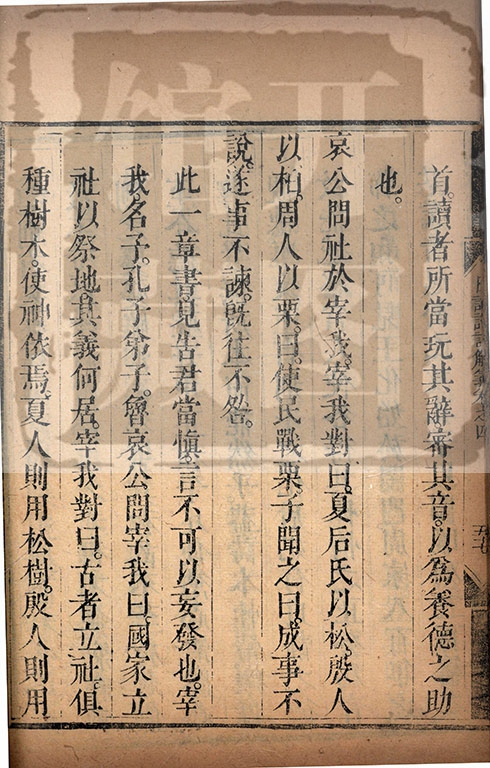 首。讀者所當玩其辭審其音。以為養德之助
也。
哀公問社於宰我。宰我對曰。夏后氏以松。殷人
以柏。周人以栗。曰。使民戰栗。子聞之曰。成事不
說。遂事不諫。旣往不咎。
此一章書見告君當慎言不可以妄發也。宰
我。名予。孔子弟子。魯哀公問宰我曰。國家立
社以祭地。其義何居。宰我對曰。古者立社。俱
種樹木。使神依焉。夏人則用松樹。殷人則用